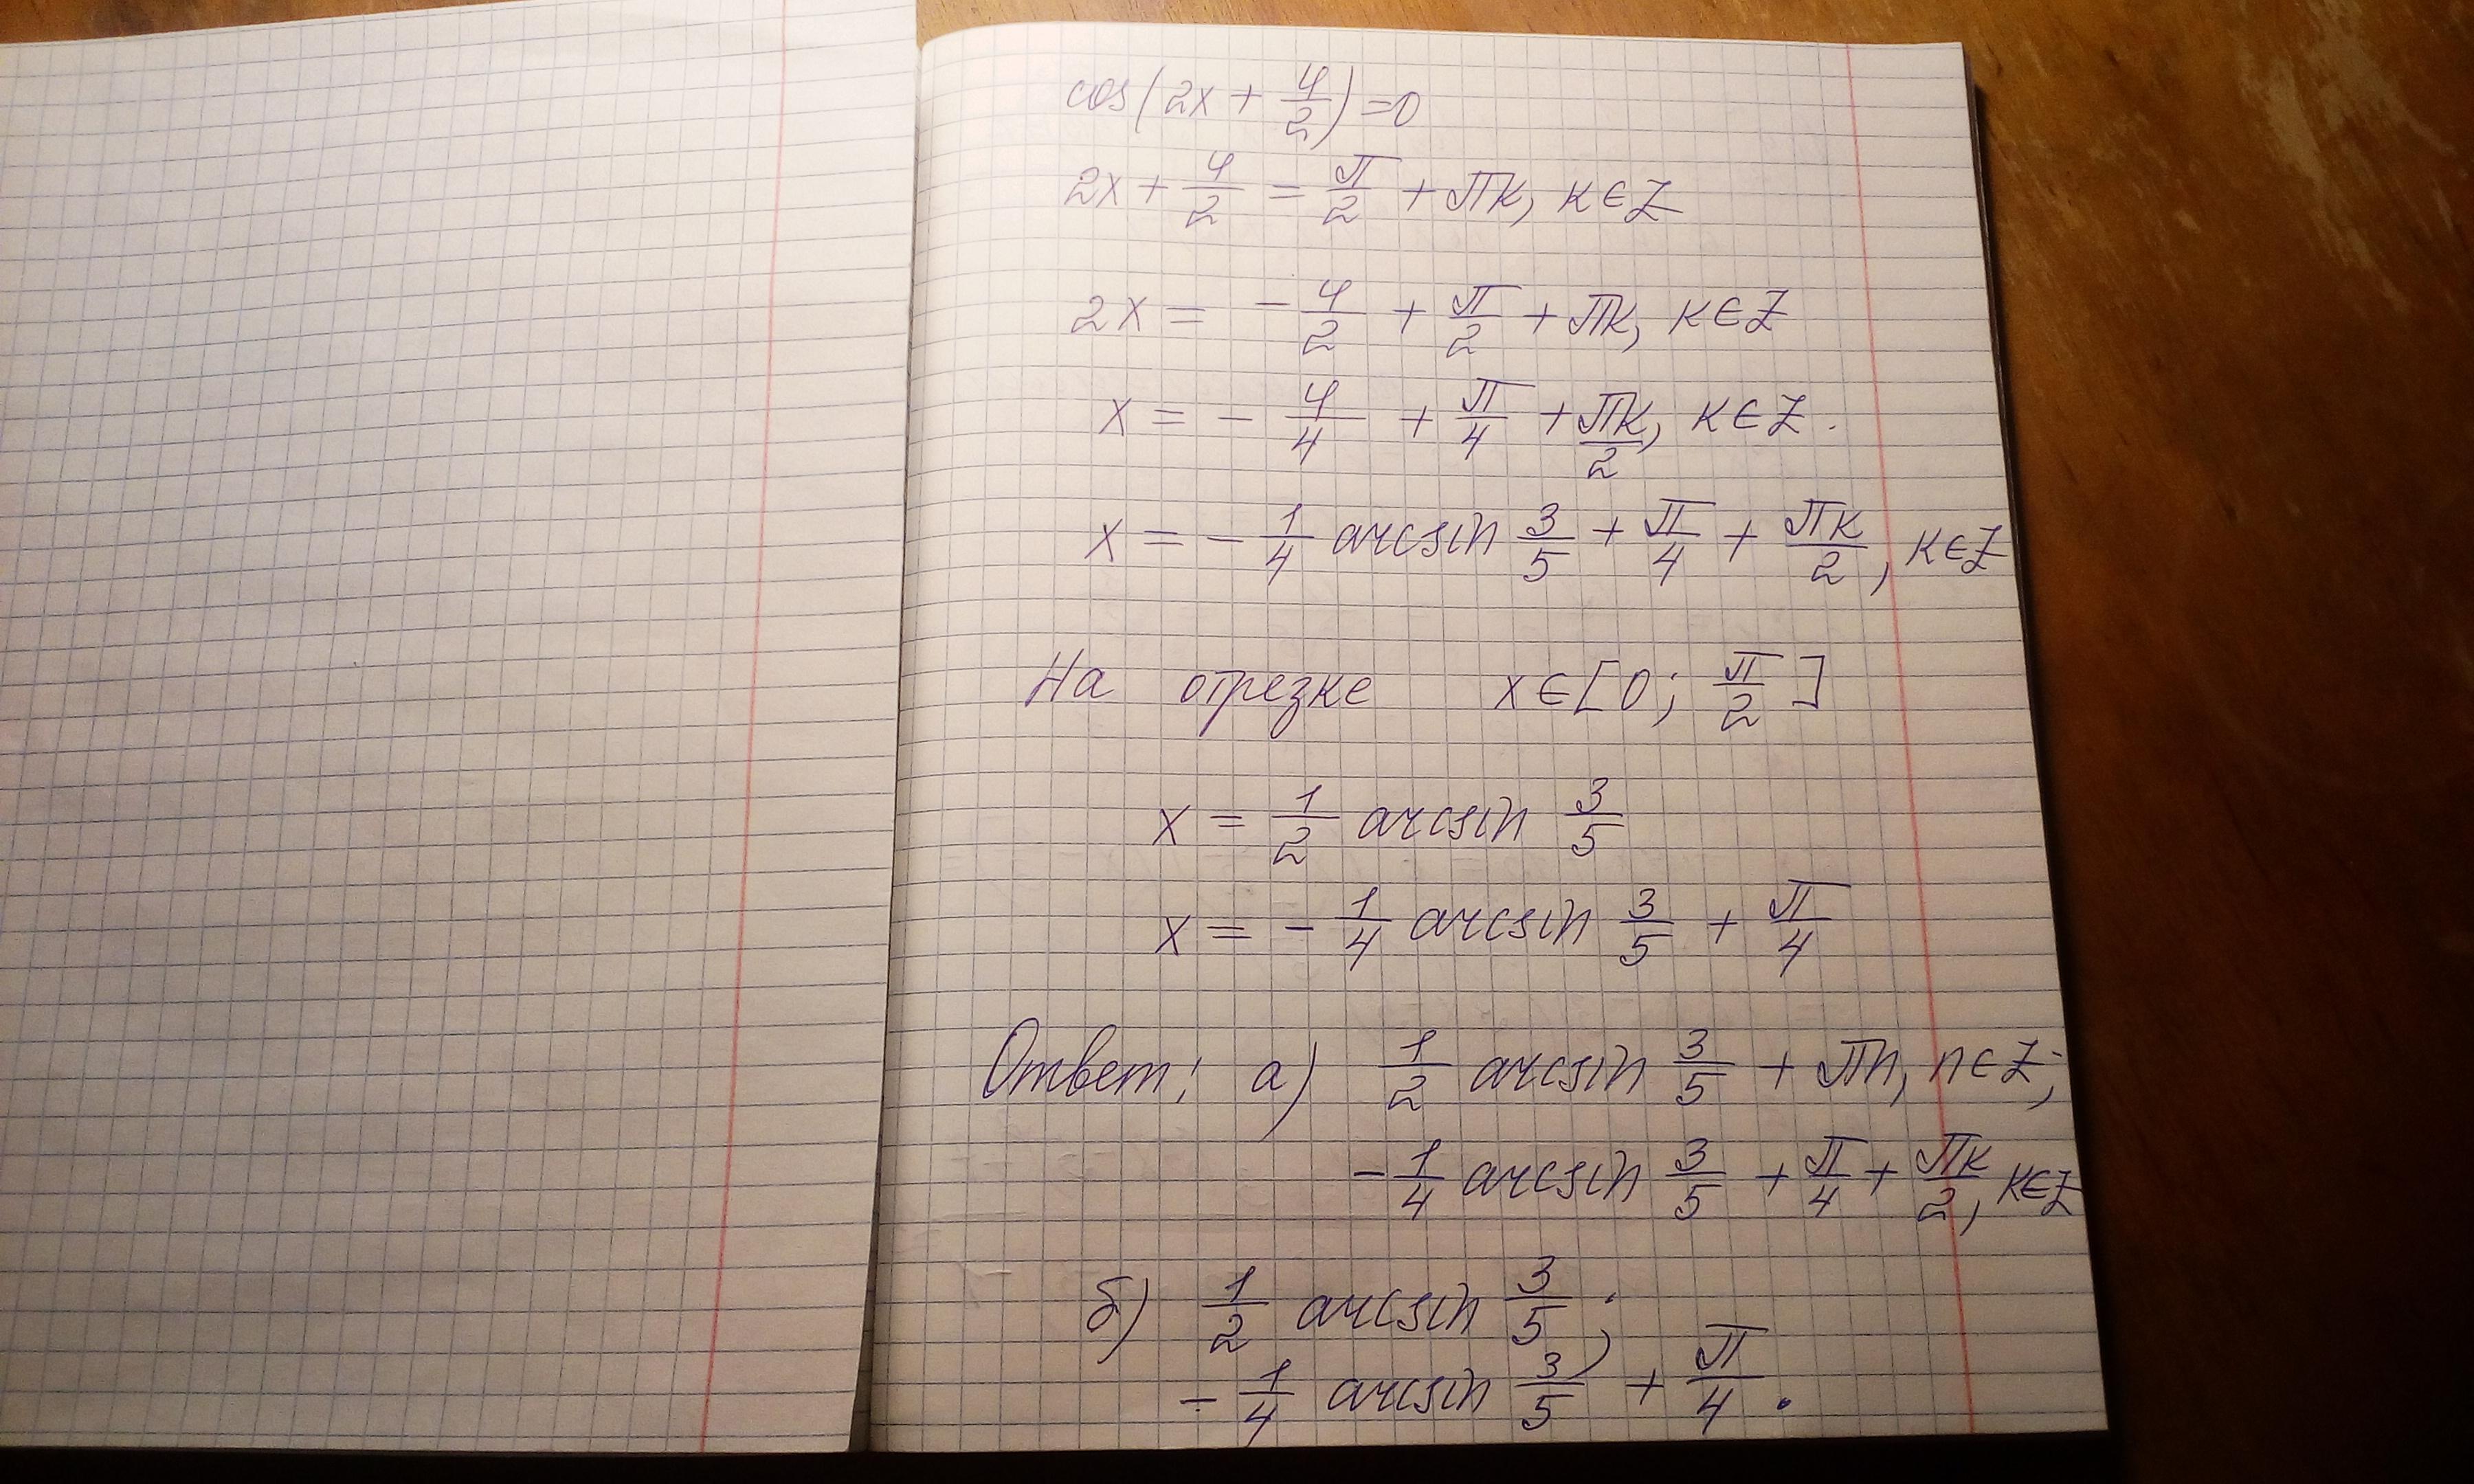 cos(2x + φ/2) = 0
2x + φ/2 = π/2 + πk, k∈Z
2x = - φ/2 + π/2 + πk, k∈Z
x = - φ/4 + π/4 + πk/2, k∈Z.
x = - 1/4 arcsin 3/5 + π/4 + πk/2, k∈Z
На отрезке x∈[0; π/2]
x = 1/2 arcsin 3/5
x = - 1/4 arcsin 3/5 + π/4
Ответ: а) 1/2 arcsin 3/5 + πn, n∈Z;
- 1/4 arcsin 3/5 + π/4 + πk/2, k∈Z
б) 1/2 arcsin 3/5;
- 1/4 arcsin 3/5 + π/4.